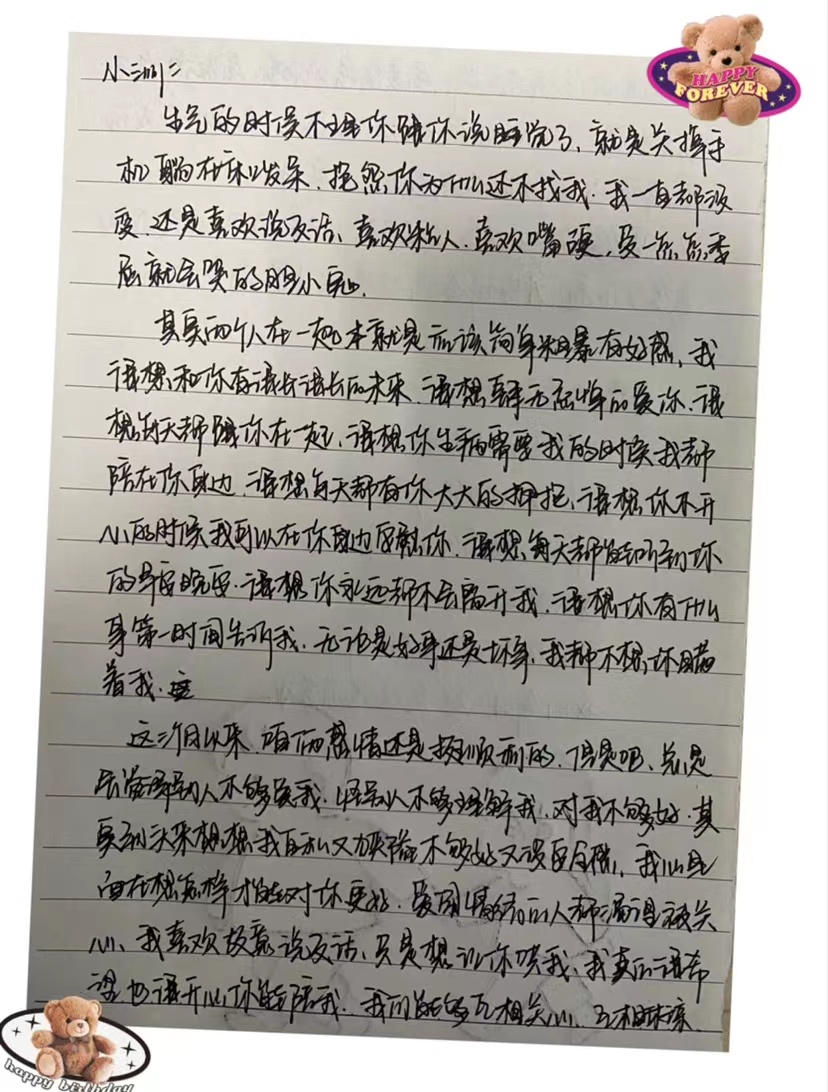 HAPPY
FOREVER
生气的时候不理你跟你说睡觉了，就是关掉手
机躺在床上发呆，抱怨你为什么还不找我，我一直都没
变，还是喜欢说反话、喜欢粘人，喜欢嘴硬，受一点点委
屈就会哭的胆小鬼。
其实两个人在一起本就是应该简单粗暴有好感，我
很想和你有很长很长的未来，很想肆无忌惮的爱你，很
想每天都跟你在一起，很想你生病需要我的时候我都
陪在你身边，很想每天都有你大大的拥抱，很想你不开
心的时候我可以在你身边安慰你，很想每天都能听到你
的早安晚安，很想你永远都不会离开我，很想你有什么
事第一时间告诉我，无论是好事还是坏事，我都不想你瞒
着我。
这三个月以来，咱俩感情还是挺顺利的，但是吧，总是
会觉得别人不够爱我，怪别人不够理解我，对我不够好，其
实到头来想想我自私又 不够好又没安全感，我心里
面在想怎样才能对你更好，爱闹情绪的人都渴望被关
心，我喜欢故意说反话，只是想让你哄我，我真的很希
望也很开心你能陪我，我们能够互相关心，互相
happy birthday